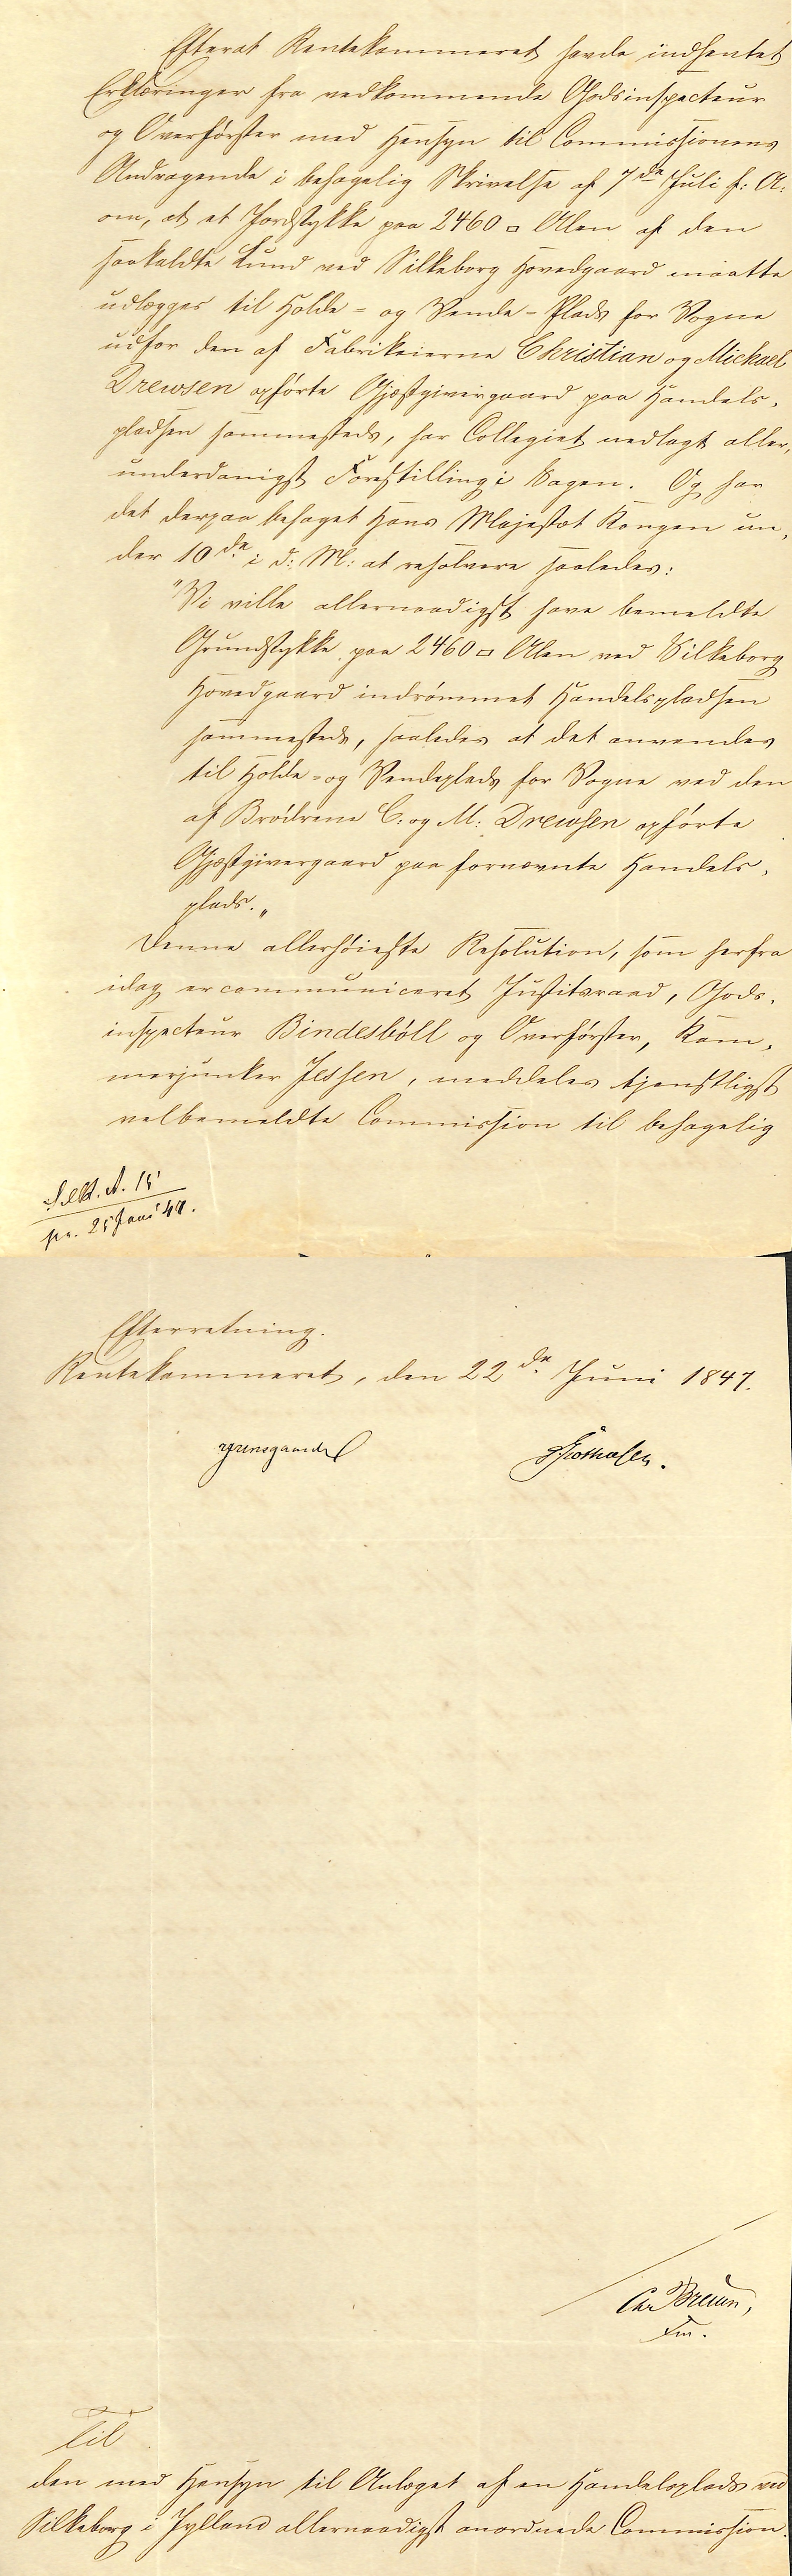 Efterat Rentekammeret havde indhentet
Erklæringer fra vedkommende Godsinspecteur
og Overførster med Hensyn til Commissionens
Andragende i behagelig Skrivelse af 7de Juli f: A:
om, at et Jordstykke paa 2460 □ Alen af den
saakaldte Lund ved Silkeborg Hovedgaard maatte
udlægges til Holde- og Vende-Plads for Vogne
udfor den af Fabrikeierne Christian og Michael
Drewsen opførte Gjæstgivergaard paa Handels-
pladsen sammesteds, har Collegiet nedlagt aller-
underdanigst Forestilling i Sagen. Og har
det derpaa behaget Hans Majestæt Kongen un-
der 10de i d: M: at resolvere saaledes:
"Vi ville allernaadigst have bemeldte
Grundstykke paa 2460 □ Alen ved Silkeborg
Hovedgaard indrømmet Handelspladsen
sammesteds, saaledes at det anvendes
til Holde- og Vendeplads for Vogne ved den
af Brødrene C: og M: Drewsen opførte
Gjæstgivergaard paa fornævnte Handels-
plads."
Denne allerhøieste Resolution, som herfra
idag er communiceret Justitsraad, Gods-
inspecteur Bindesbøll og Overførster, Kam-
merjunker Jessen, meddeles tjenstligst
velbemeldte Commission til behagelig
pr. 25 Juni 47.
Efterretning.
Rentekammeret, den 22de Juni 1847.
Til
den med Hensyn til Anlæget af en Handelsplads ved
Silkeborg i Jylland allernaadigst anordnede Commission.